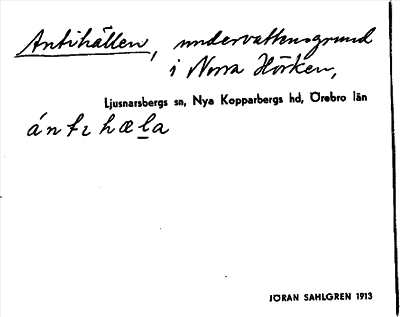 Antihällen, undervattensgrund
i Norra Hörken,
Ljusnarsbergs sn, Nya Kopparbergs hd, Örebro län
ántɩhæla
JÖRAN SAHLGREN 1913